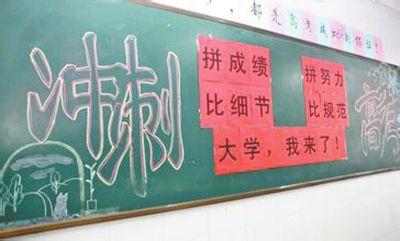 都是高考成功的保证！
冲刺
拼成绩
比细节
拼努力
比规范
大学，我来了！
高考